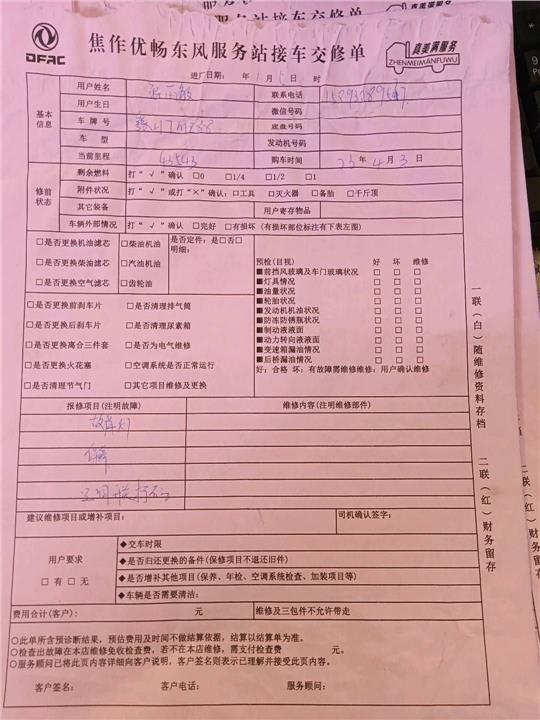 DFAC
焦作优畅东风服务站接车交修单
真美满服务
ZHENMEIMANFUWU
进厂日期： 年 1月 5日 时
基本信息
用户姓名
联系电话
用户生日
微信号码
车牌号
底盘号码
车型
发动机号码
当前里程 43543
购车时间 23年4月3日
修前状态
剩余燃料 打“√”确认 □0 □1/4 □1/2 □1
附件状况 打“√”或打“×”确认：□工具 □灭火器 □备胎 □千斤顶
其它装备
用户寄存物品
车辆外部情况 打“√”确认 □完好 □有损坏（有损坏部位标注有下表左图）
□是否更换机油滤芯 □柴油机油
□是否更换柴油滤芯 □汽油机油
□是否更换空气滤芯 □齿轮油
是否定件：是□否□
明细：
□是否更换前刹车片 □是否清理排气筒
□是否更换后刹车片 □是否清理尿素箱
□是否更换离合三件套 □是否为电气维修
□是否更换火花塞 □空调系统是否正常运行
□是否清理节气门 □其它项目维修及更换
预检(目视) 好 坏 维修
■前挡风玻璃及车门玻璃状况 □ □ □
■灯具情况 □ □ □
■油量状况 □ □ □
■轮胎状况 □ □ □
■发动机机油状况 □ □ □
■防冻防锈瓶状况 □ □ □
■制动液液面 □ □ □
■动力转向液液面 □ □ □
■变速箱漏油情况 □ □ □
■后桥漏油情况 □ □ □
好：合格 坏：有故障需维修维修：用户确认维修
报修项目(注明故障)
维修内容(注明维修部件)
故障灯
建议维修项目或增补项目：
司机确认签字：
用户要求
□有 □无
◆交车时限
◆是否归还更换的备件(保修项目不退还旧件)
◆是否增补其他项目(保养、年检、空调系统检查、加装项目等)
◆车辆是否需要清洁：
费用合计(客户)： 元
维修及三包件不允许带走
○此单所含预诊断结果，预估费用及时间不做结算依据，结算以结算单为准。
○检查出故障在本店维修免收检查费，若不在本店维修，需支付检查费 元。
○服务顾问已将此页内容详细向客户说明，客户签名则表示已理解并接受此页内容。
客户签名： 客户电话： 服务顾问：
一联(白)随维修资料存档
二联(红)财务留存